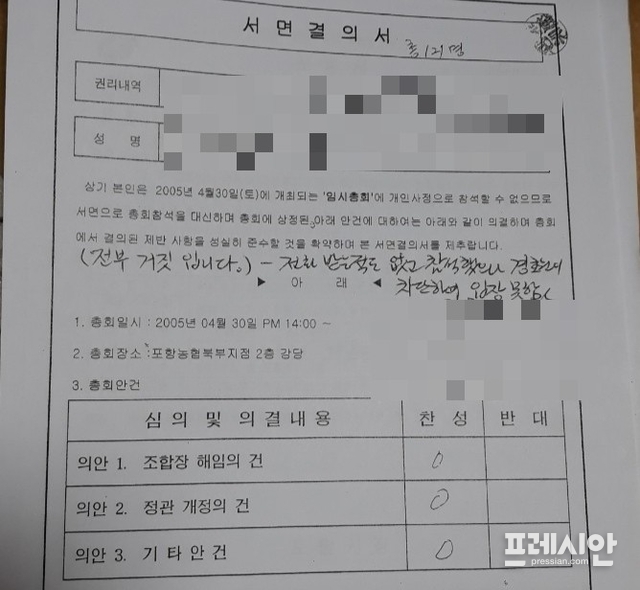 서면결의서
총 121명
권리내역
성 명
상기 본인은 2005년 4월30일(토)에 개최되는 '임시총회'에 개인사정으로 참석할 수 없으므로
서면으로 총회참석을 대신하며 총회에 상정된 아래 안건에 대하여는 아래와 같이 의결하며 총회
에서 결의된 제반 사항을 성실히 준수할 것을 확약하며 본 서면결의서를 제추합니다.
(전부 거짓 입니다.) - 전화 받은적도 없고 참석했으나
▶ 아 래 ◀ 차단하여 입장 못함
1. 총회일시 : 2005년 04월 30일 PM 14:00 ~
2. 총회장소 : 포항농협북부지점 2층 강당
3. 총회안건
심 의 및 의 결 내 용 찬 성 반 대
의안 1. 조합장 해임의 건 O
의안 2. 정관 개정의 건 O
의안 3. 기 타 안 건 O
프레시안
pressian.com